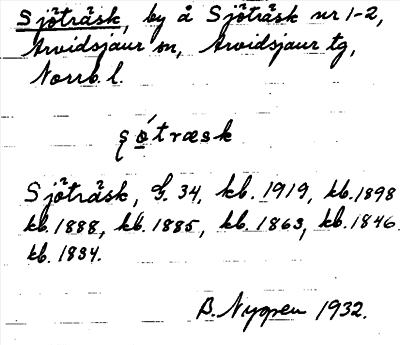 Sjöträsk, by å Sjöträsk nr 1-2,
Arvidsjaur sn, Arvidsjaur tg,
Norrb. l.
ʂótræsk
Sjöträsk, G. 34, kb. 1919, kb. 1898
kb. 1888, kb. 1885, kb. 1863, kb. 1846
kb. 1834.
B. Nygren 1932.